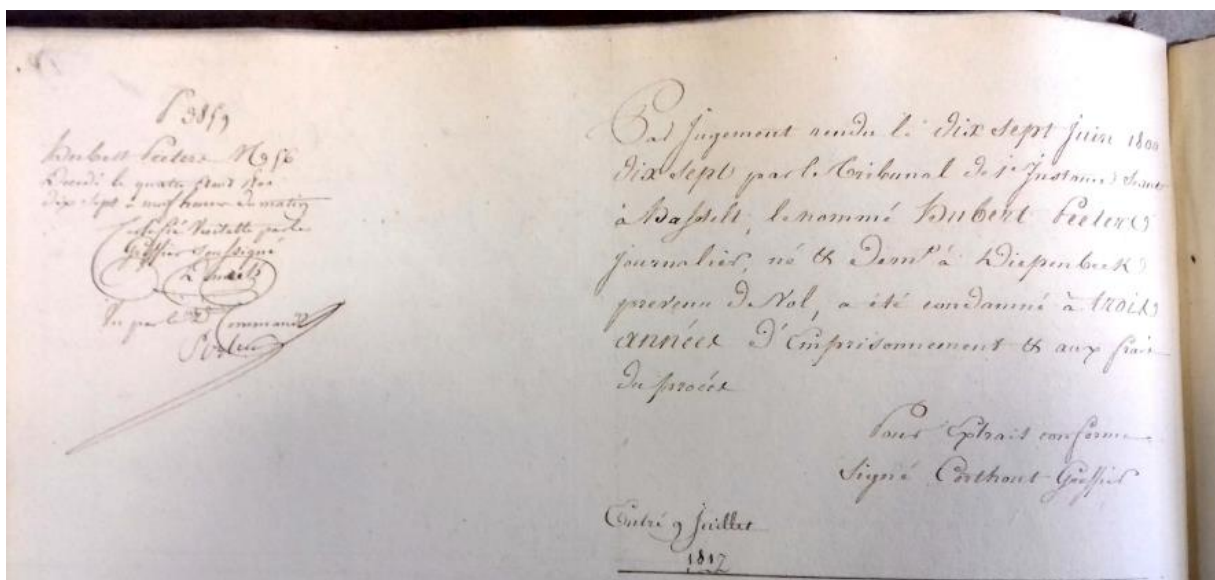 Hubert Peeters N 956
Décedé le quatre
dix sept à neuf heures du matin
Certifié Véritable par le
Greffier Soussigné
Vu par le Commandt
Par Jugement rendu le dix sept Juin 1800
dix sept par le Tribunal de 1e Instance Séant
à Hasselt, le nommé Hubert Peeters
journalier, né & demt à Diepenbeek
prevenu de Vol, a été condamné à trois
années d'Emprisonnement & aux frais
du procès
Pour Extrait conforme
Signé Corthout Greffier
Entré 9 Juillet
1817